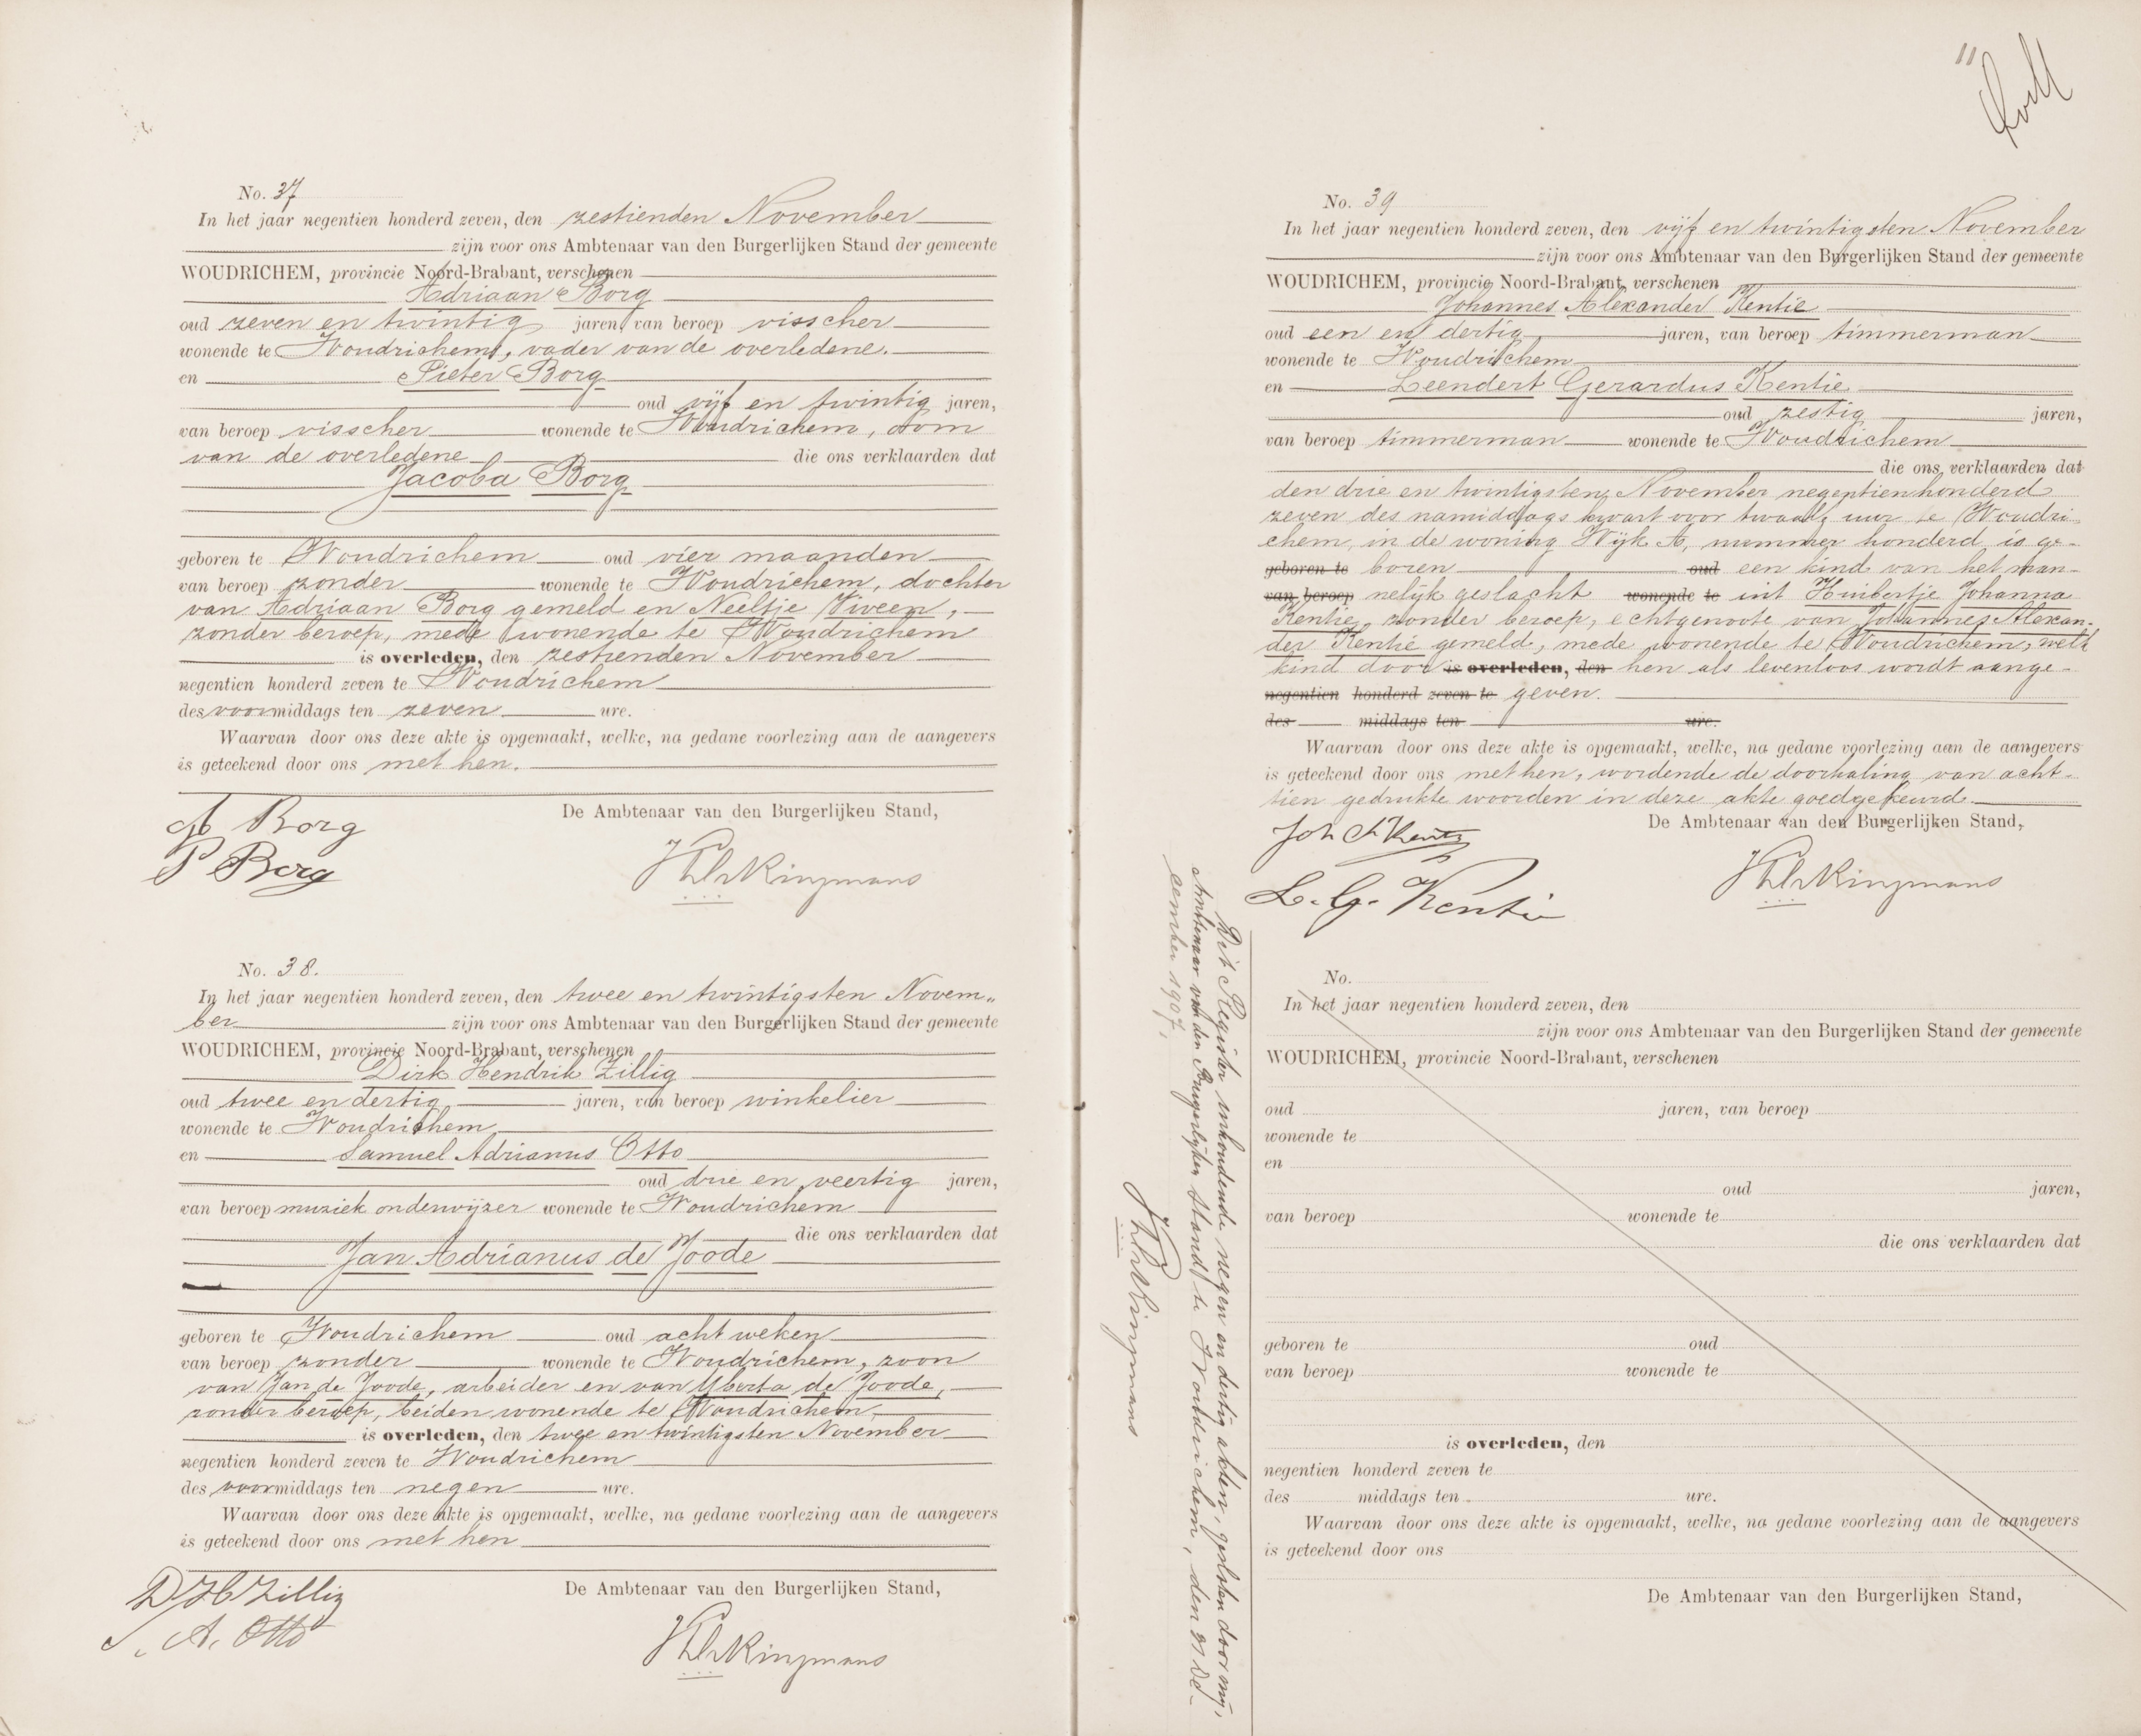 No. 37
In het jaar negentien honderd zeven, den zestienden November
zijn voor ons Ambtenaar van den Burgerlijken Stand der gemeente
WOUDRICHEM, provincie Noord-Brabant, verschenen
Adriaan Borg
oud zeven en twintig jaren, van beroep visscher
wonende te Woudrichem, vader van de overledene.
en Pieter Borg
oud vijf en twintig jaren,
van beroep visscher wonende te Woudrichem, oom
van de overledene die ons verklaarden dat
Jacoba Borg
geboren te Woudrichem oud vier maanden
van beroep zonder wonende te Woudrichem, dochter
van Adriaan Borg gemeld en Neeltje Viveen,
zonder beroep, mede wonende te Woudrichem
is overleden, den zestienden November
negentien honderd zeven te Woudrichem
des voormiddags ten zeven ure.
Waarvan door ons deze akte is opgemaakt, welke, na gedane voorlezing aan de aangevers
is geteekend door ons met hen.
De Ambtenaar van den Burgerlijken Stand,
A Borg
P Borg
No. 38.
In het jaar negentien honderd zeven, den twee en twintigsten Novem„
ber zijn voor ons Ambtenaar van den Burgerlijken Stand der gemeente
WOUDRICHEM, provincie Noord-Brabant, verschenen
Dirk Hendrik Zillig
oud twee en dertig jaren, van beroep winkelier
wonende te Woudrichem
en Samuel Adrianus Otto
oud drie en veertig jaren,
van beroep muziek onderwijzer wonende te Woudrichem
die ons verklaarden dat
Jan Adrianus de Joode
geboren te Woudrichem oud acht weken
van beroep zonder wonende te Woudrichem, zoon
van Jan de Joode, arbeider en van Yberta de Joode,
zonder beroep, beiden wonende te Woudrichem
is overleden, den twee en twintigsten November
negentien honderd zeven te Woudrichem
des voormiddags ten negen ure.
Waarvan door ons deze akte is opgemaakt, welke, na gedane voorlezing aan de aangevers
is geteekend door ons met hen
De Ambtenaar van den Burgerlijken Stand,
D H Zillig
S. A. Otto
11
No. 39
In het jaar negentien honderd zeven, den vijf en twintigsten November
zijn voor ons Ambtenaar van den Burgerlijken Stand der gemeente
WOUDRICHEM, provincie Noord-Brabant, verschenen
Johannes Alexander Kentie
oud een en dertig jaren, van beroep timmerman
wonende te Woudrichem
en Leendert Gerardus Kentie
oud zestig jaren,
van beroep timmerman wonende te Woudrichem
die ons verklaarden dat
den drie en twintigsten November negentienhonderd
zeven des namiddags kwart over twaalf uur te Woudri
chem, in de woning Wijk A, nummer honderd is ge-
geboren te boren oud een kind van het man-
van beroep nelijk geslacht wonende te uit Huibertje Johanna
Kentie, zonder beroep, echtgenoote van Johannes Alexan-
der Kentie gemelde, mede wonende te Woudrichem, welk
kind door is overleden, den hen als levenloos wordt aange-
negentien honderd zeven te geven.
des middags ten ure.
Waarvan door ons deze akte is opgemaakt, welke, na gedane voorlezing aan de aangevers
is geteekend door ons met hen, wordende de doorhaling van acht-
tien gedrukte woorden in deze akte goedgekeurd.
De Ambtenaar van den Burgerlijken Stand,
Joh A Kentie
L. G. Kentie
Dit Register inhoudende negen en dertig akten, gesloten door mij,
Ambtenaar van den Burgerlijken Stand te Woudrichem, den 31 De-
cember 1907,
No.
In het jaar negentien honderd zeven, den
zijn voor ons Ambtenaar van den Burgerlijken Stand der gemeente
WOUDRICHEM, provincie Noord-Brabant, verschenen
oud jaren, van beroep
wonende te
en
oud jaren,
van beroep wonende te
die ons verklaarden dat
geboren te oud
van beroep wonende te
is overleden, den
negentien honderd zeven te
des middags ten ure.
Waarvan door ons deze akte is opgemaakt, welke, na gedane voorlezing aan de aangevers
is geteekend door ons
De Ambtenaar van den Burgerlijken Stand,